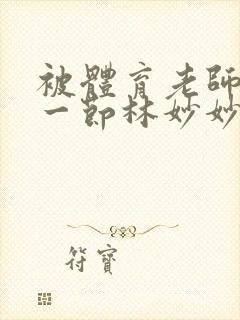 被體育老師
一節林妙妙
符寶